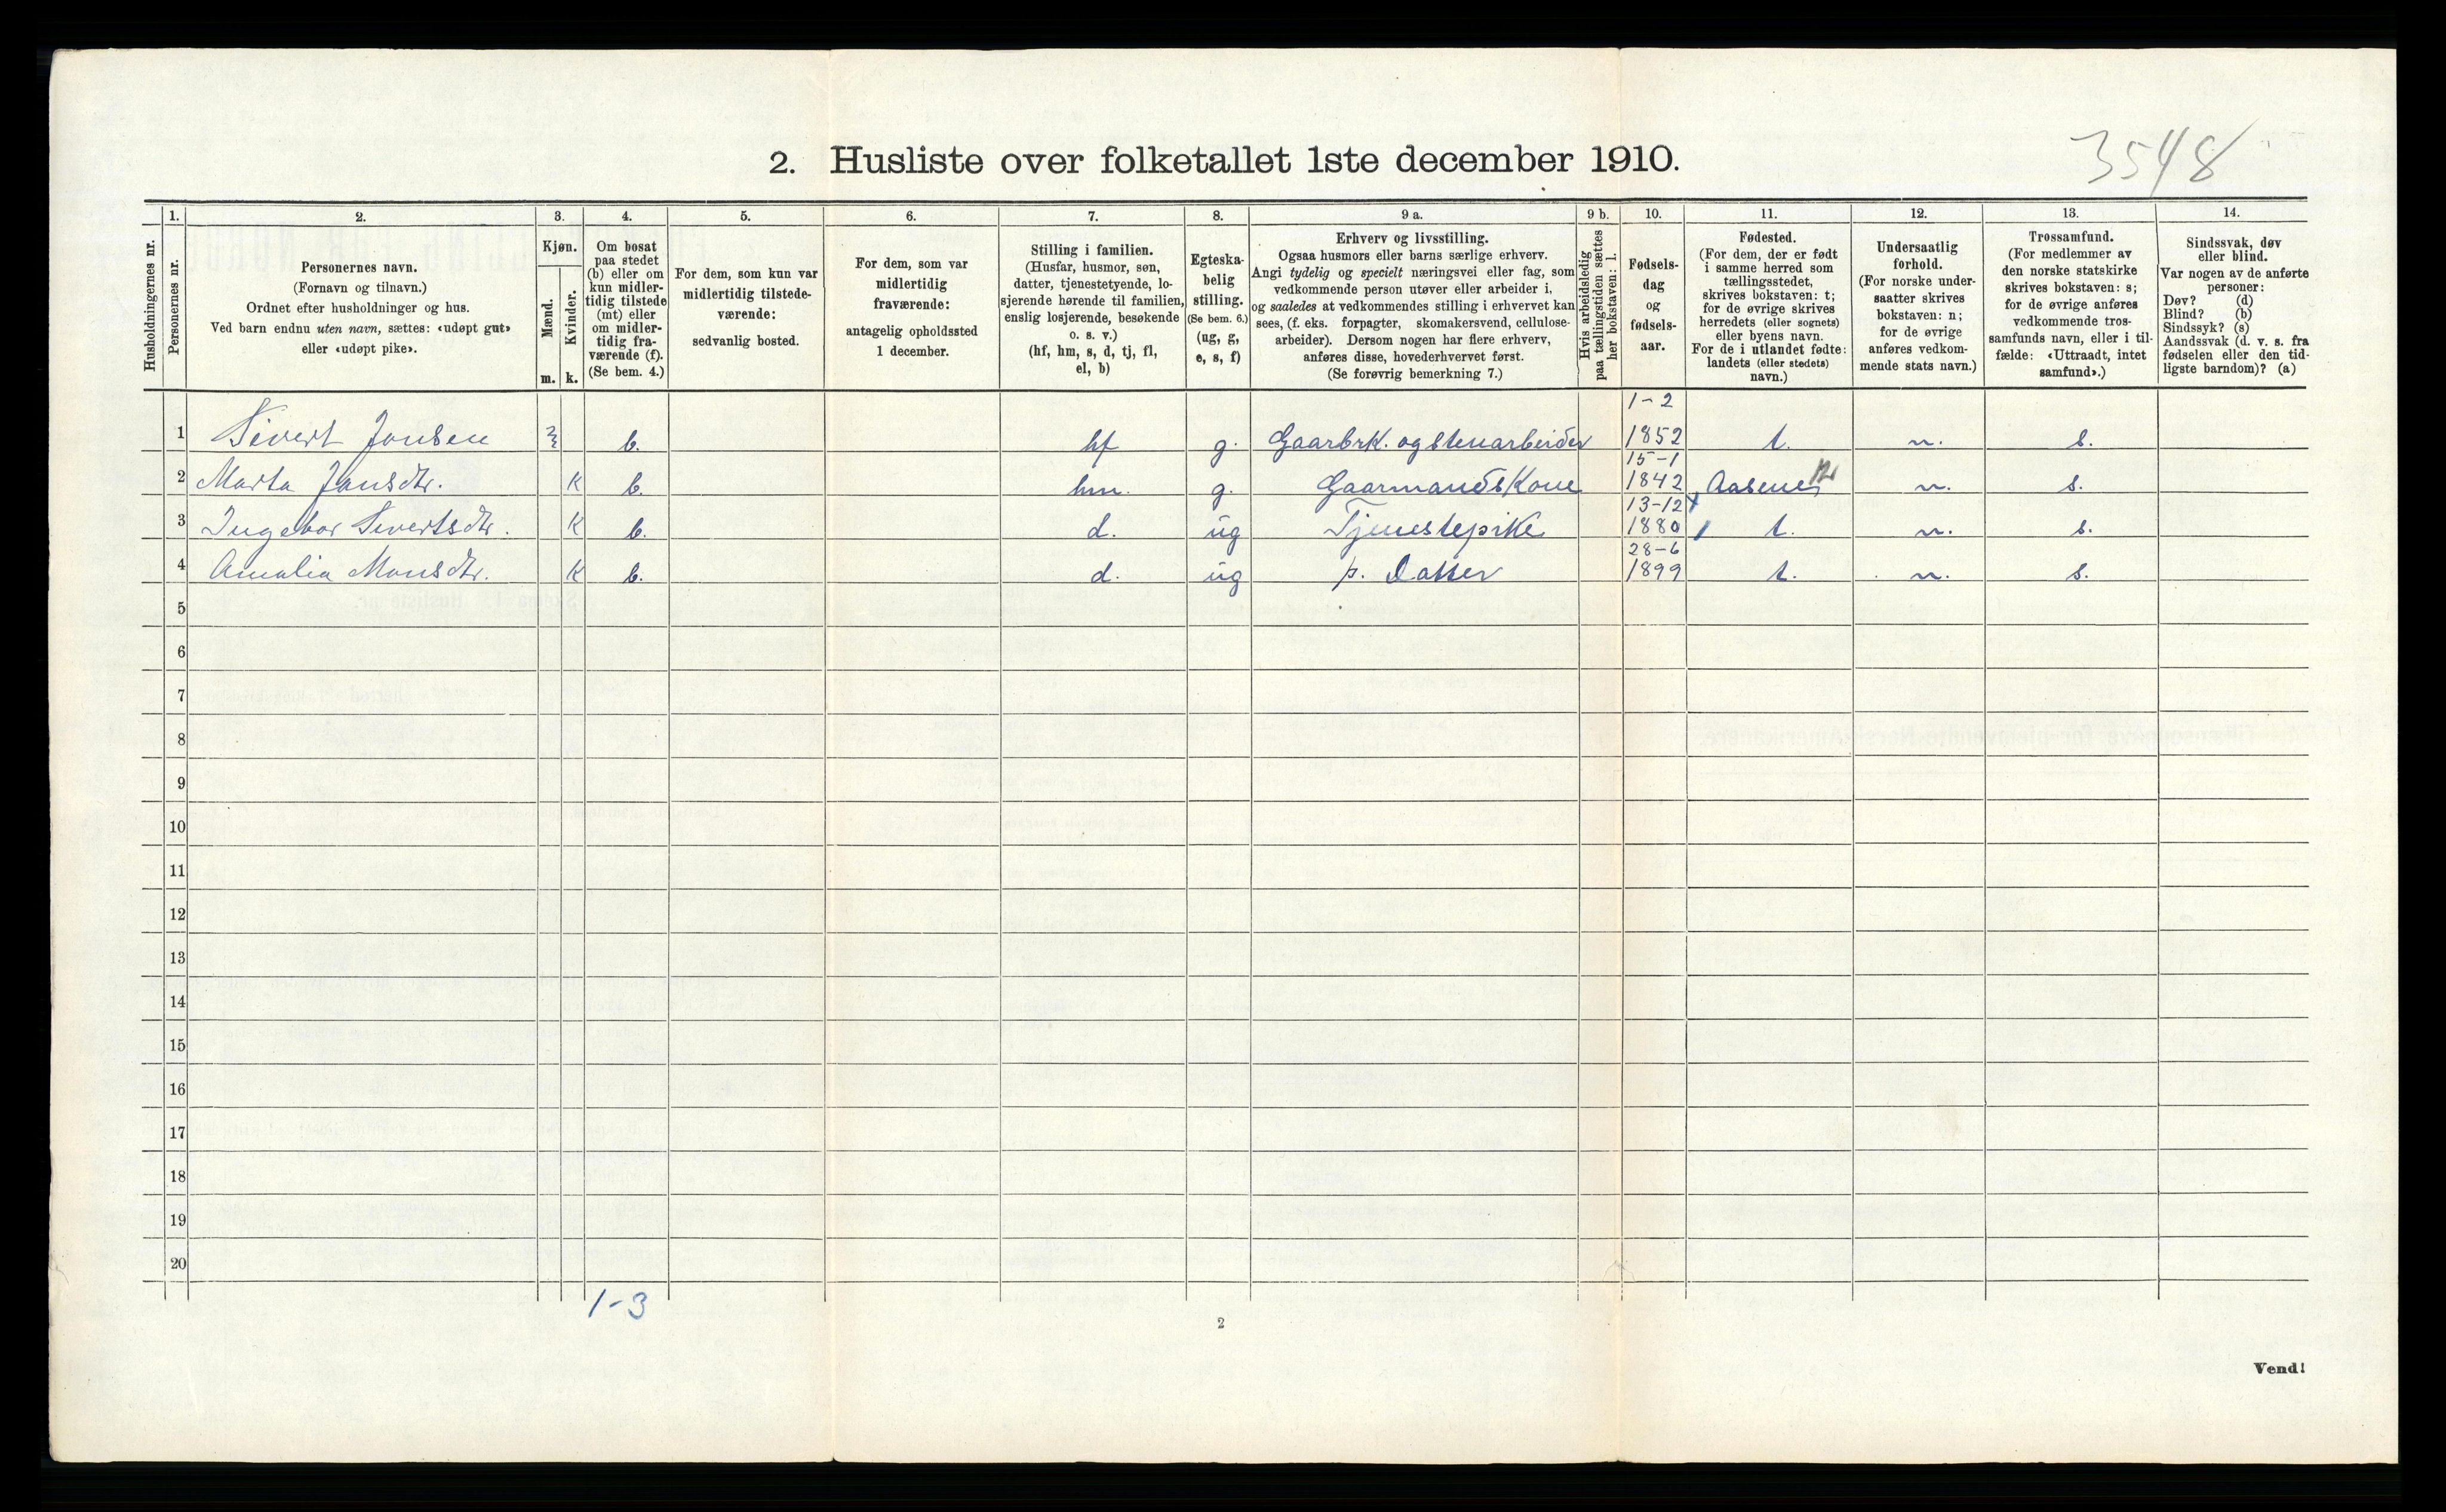 3548
2. Husliste over folketallet 1ste december 1910.
Husholdningernes nr.
1. 2. 3. 4. 5. 6. 7. 8. 9 a. 9 b. 10. 11. 12. 13. 14.
Personernes nr.
Personernes navn.
(Fornavn og tilnavn.)
Ordnet efter husholdninger og hus.
Ved barn endnu uten navn, sættes: «udøpt gut»
eller «udøpt pike».
Kjøn.
Mænd.
m.
Kvinder.
k.
Om bosat
paa stedet
(b) eller om
kun midler-
tidig tilstede
(mt) eller
om midler-
tidig fra-
værende (f).
(Se bem. 4.)
For dem, som kun var
midlertidig tilstede-
værende:
sedvanlig bosted.
For dem, som var
midlertidig
fraværende:
antagelig opholdssted
1 december.
Stilling i familien.
(Husfar, husmor, søn,
datter, tjenestetyende, lo-
sjerende hørende til familien,
enslig losjerende, besøkende
o. s. v.)
(hf, hm, s, d, tj, fl,
el, b)
Egteska-
belig
stilling.
(Se bem. 6.)
(ug, g,
e, s, f)
Erhverv og livsstilling.
Ogsaa husmors eller barns særlige erhverv.
Angi tydelig og specielt næringsvei eller fag, som
vedkommende person utøver eller arbeider i,
og saaledes at vedkommendes stilling i erhvervet kan
sees, (f. eks. forpagter, skomakersvend, cellulose-
arbeider). Dersom nogen har flere erhverv,
anføres disse, hovederhvervet først.
(Se forøvrig bemerkning 7.)
Hvis arbeidsledig
paa tællingstiden sættes
her bokstaven: l.
Fødsels-
dag
og
fødsels-
aar.
Fødested.
(For dem, der er født
i samme herred som
tællingsstedet,
skrives bokstaven: t;
for de øvrige skrives
herredets (eller sognets)
eller byens navn.
For de i utlandet fødte:
landets (eller stedets)
navn.)
Undersaatlig
forhold.
(For norske under-
saatter skrives
bokstaven: n;
for de øvrige
anføres vedkom-
mende stats navn.)
Trossamfund.
(For medlemmer av
den norske statskirke
skrives bokstaven: s;
for de øvrige anføres
vedkommende tros-
samfunds navn, eller i til-
fælde: «Uttraadt, intet
samfund».)
Sindssvak, døv
eller blind.
Var nogen av de anførte
personer:
Døv? (d)
Blind? (b)
Sindssyk? (s)
Aandssvak (d. v. s. fra
fødselen eller den tid-
ligste barndom)? (a)
1-2
1 Sivert Jonsen b. hf g. Gaarbrk. og stenarbeider 1852 t. n. s.
15-1
2 Marta Jonsdtr. k b. hm. g. Gaarmandskone 1842 Aasene n. s.
13-12
3 Ingebor Sivertsdtr. k b. d. ug Tjenestepike 1880 t. n. s.
28-6
4 Amalia Monsdtr. k b. d. ug p. Datter 1899 t. n. s.
5
6
7
8
9
10
11
12
13
14
15
16
17
18
19
20
1-3
2
Vend!